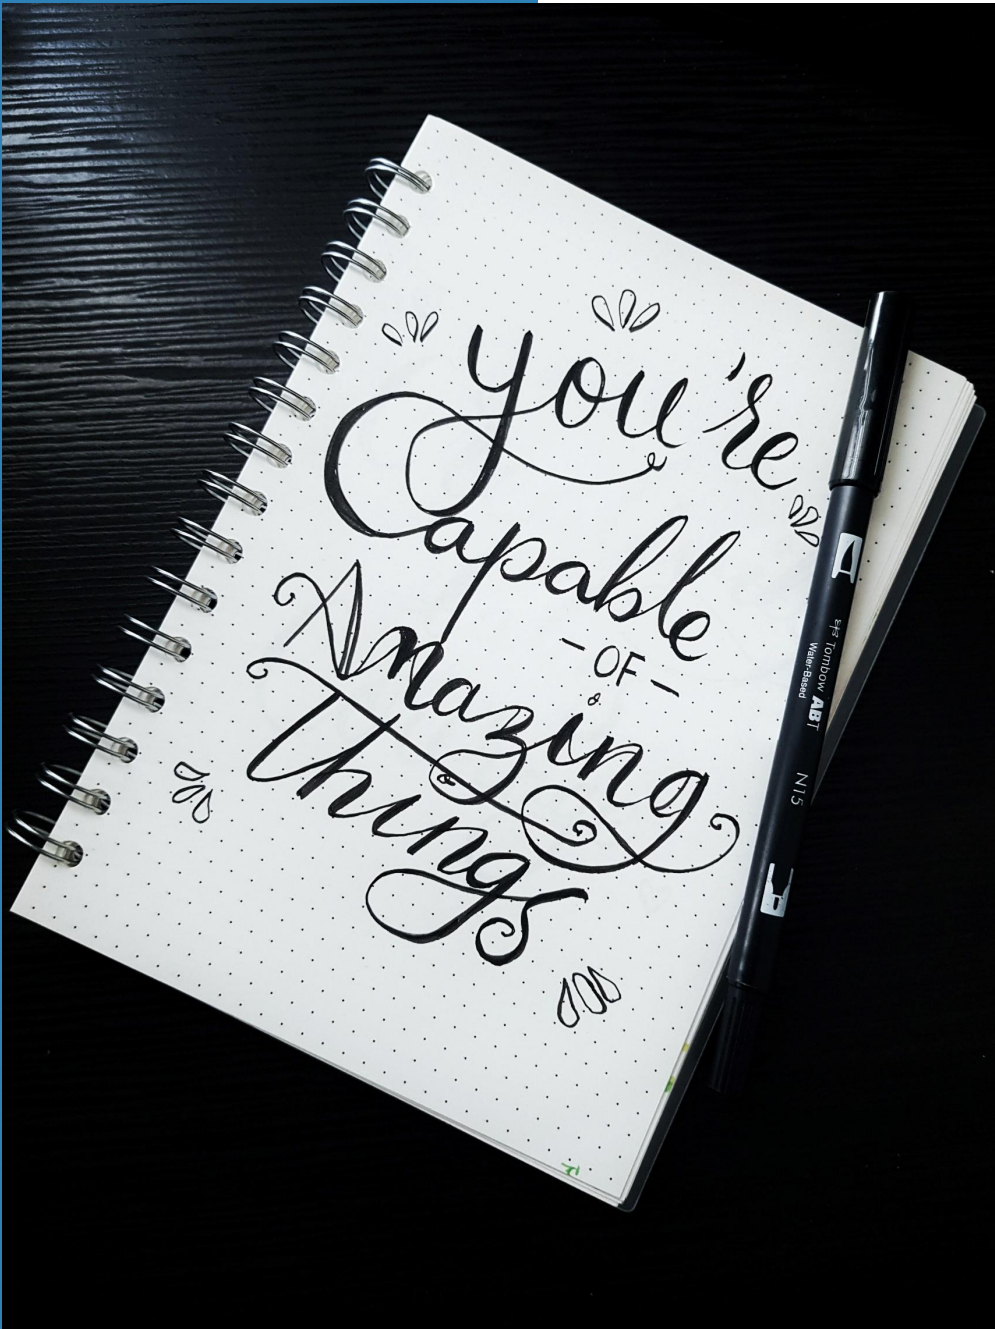 you're
Capable
- OF -
Amazing
Things
Tombow ABT
Water-Based
N15